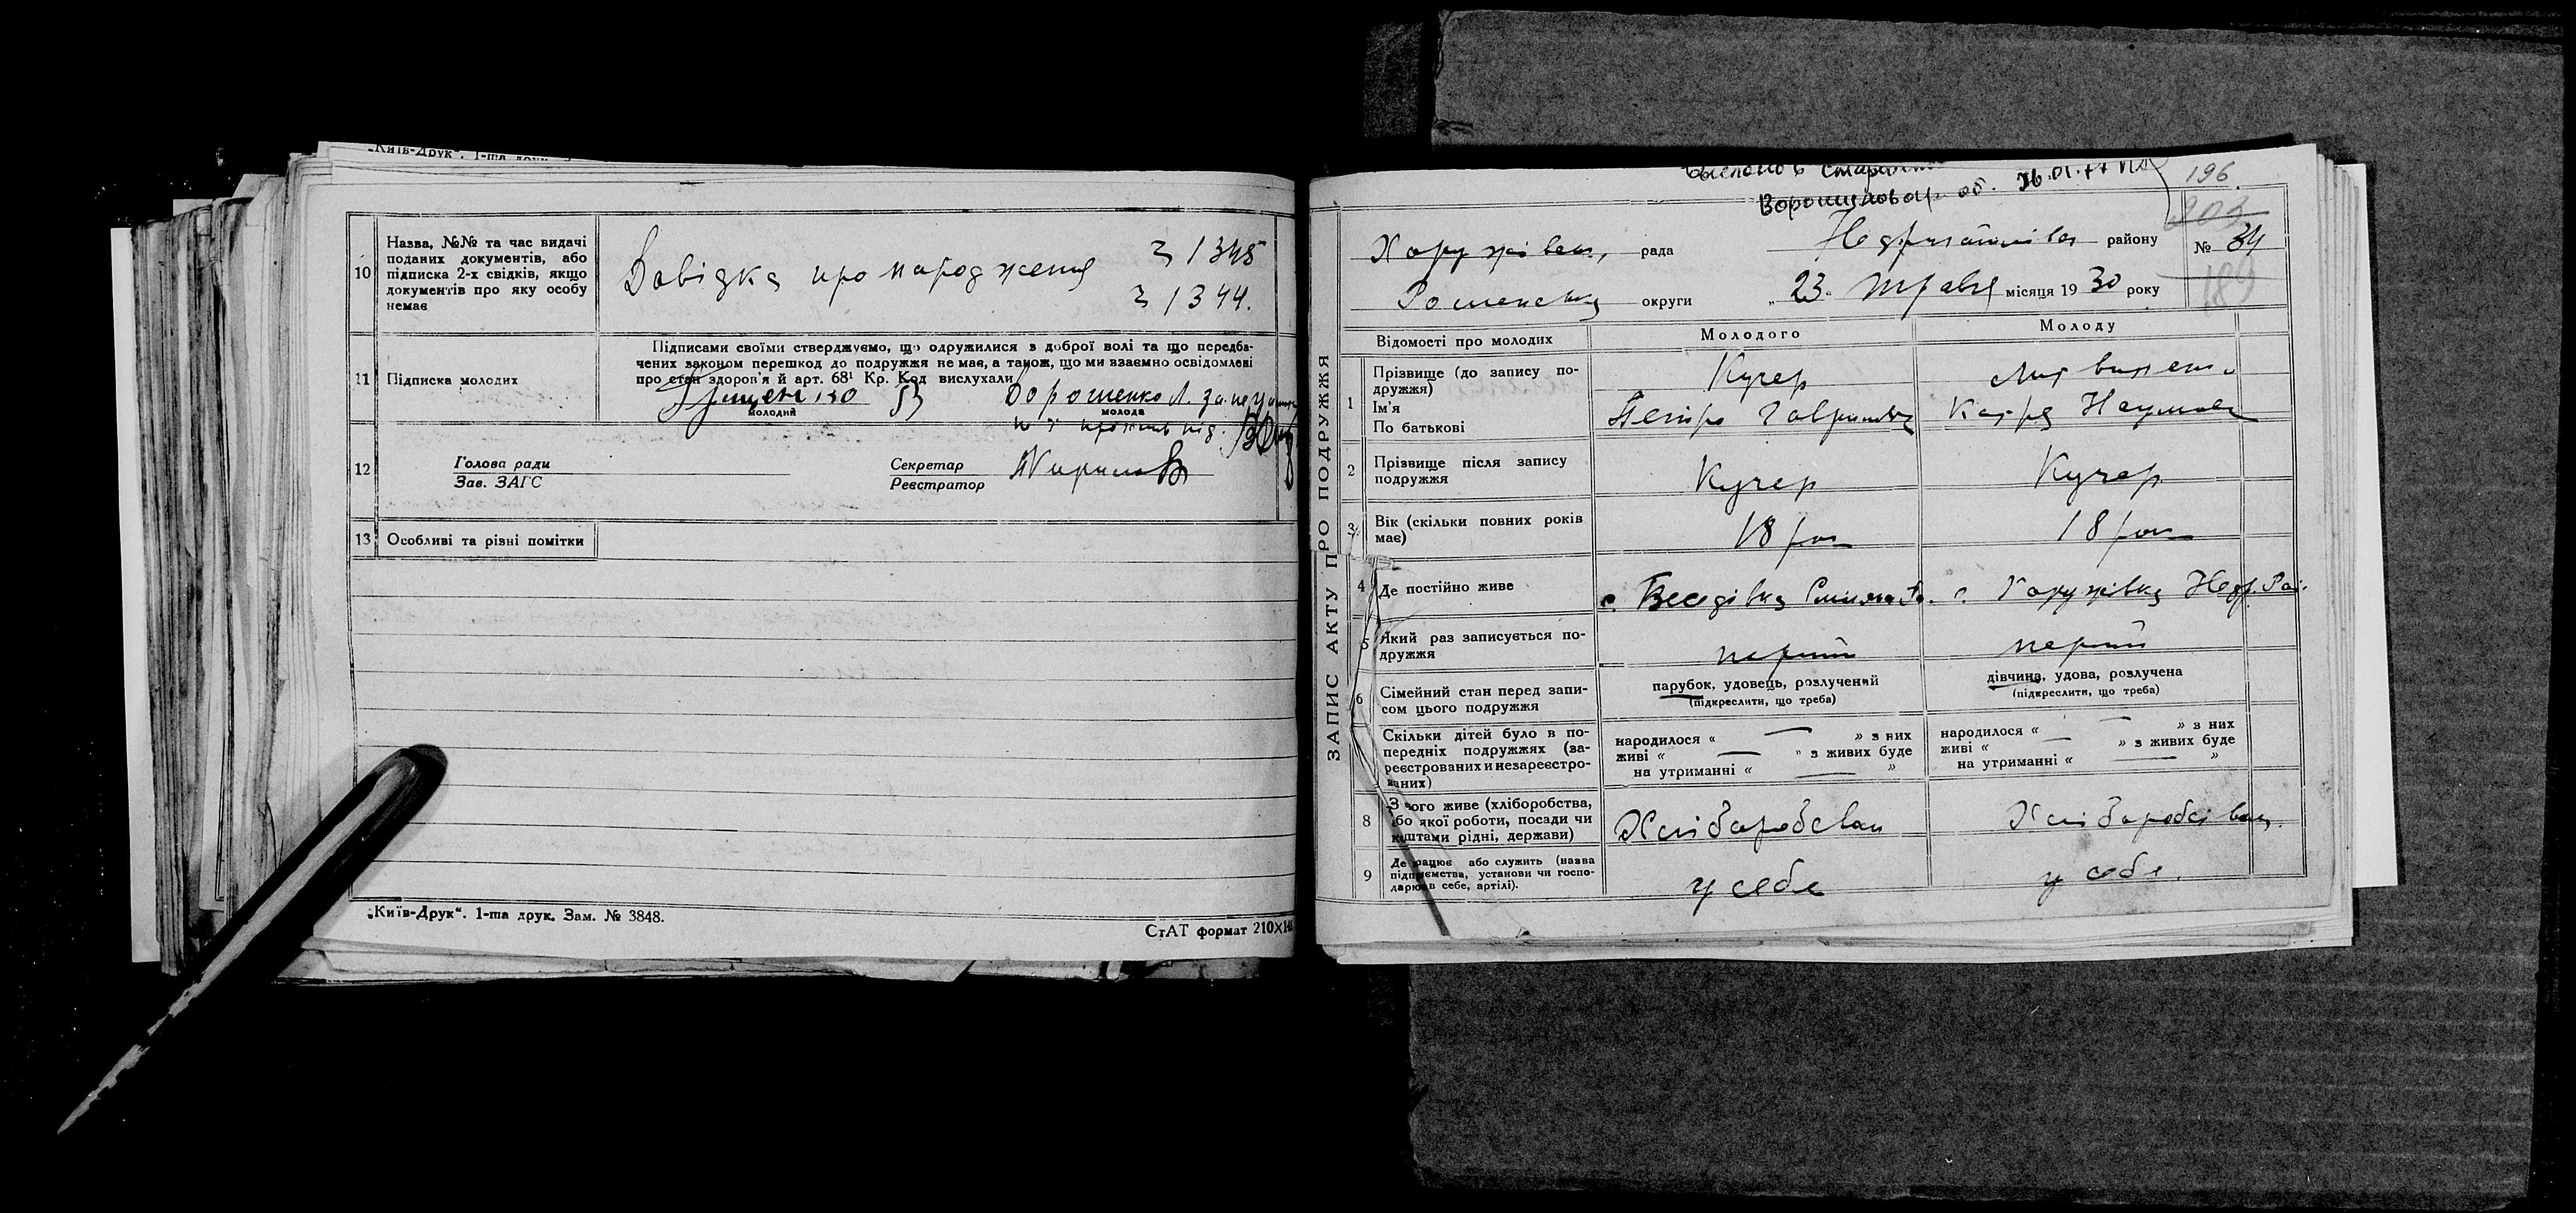 „Київ-Друк“. 1-ша друк.
10 Назва, №№ та час видачі
поданих документів, або
підписка 2-х свідків, якщо
документів про яку особу
немає
Довідка про народження 31345
31344.
11 Підписка молодих
Підписами своїми стверджуємо, що одружилися з доброї волі та що передба-
чених законом перешкод до подружжя не має, а також, що ми взаємно освідомлені
про стан здоров'я й арт. 68¹ Кр. Код вислухали
Дорошенко Л. за
молодий молода
12 Голова ради
Зав. ЗАГС
Секретар
Реєстратор
13 Особливі та різні помітки
„Київ-Друк“. 1-ша друк. Зам. № 3848.
СтАТ формат 210×1
196
26.01.77
203
рада району № 34
Роменська округи „23“ травня місяця 1930 року
189
ЗАПИС АКТУ ПРО ПОДРУЖЖЯ
Відомості про молодих Молодого Молоду
1 Прізвище (до запису по-
дружжя)
Ім'я
По батькові
Кучер
Петро Наумовна
2 Прізвище після запису
подружжя
Кучер Кучер
3 Вік (скільки повних років
має)
18 рок 18 рок
4 Де постійно живе
с. Беседівка с. Хоружівка Недр. Рай.
5 Який раз записується по-
дружжя
перший перший
6 Сімейний стан перед запи-
сом цього подружжя
парубок, удовець, розлучений
(підкреслити, що треба)
дівчина, удова, розлучена
(підкреслити, що треба)
Скільки дітей було в по-
передніх подружжях (за-
реєстрованих и незареєстро-
ваних)
народилося « — » з них
живі « — » з живих буде
на утриманні « — »
народилося « — » з них
живі « — » з живих буде
на утриманні « — »
8 З чого живе (хліборобства,
або якої роботи, посади чи
коштами рідні, держави)
9 Де працює або служить (назва
підприємства, установи чи госпо-
дарює в себе, артілі).
у себе у себе.